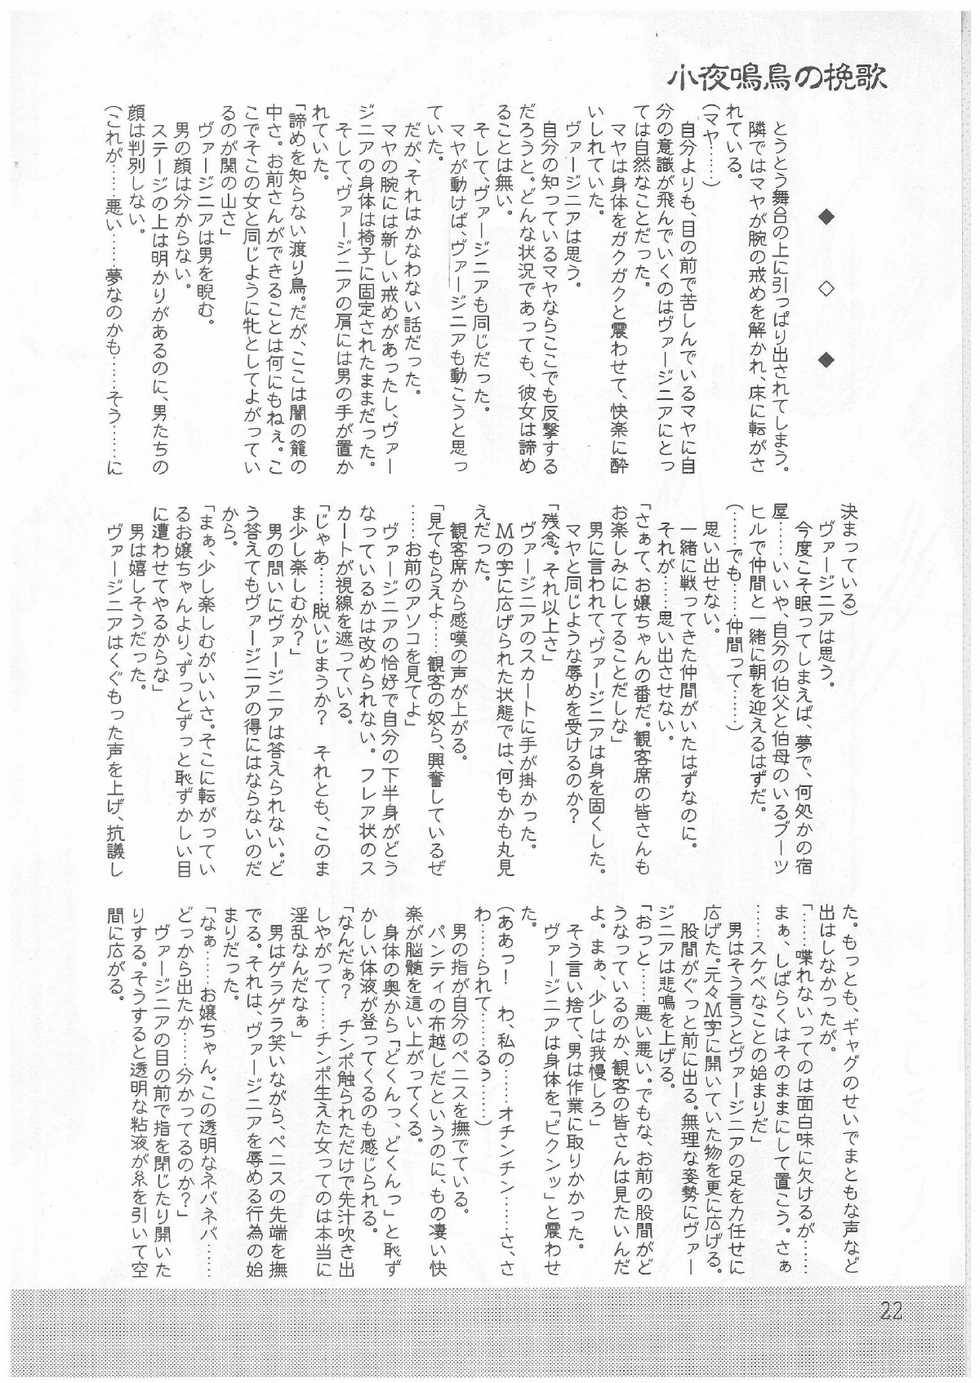 小夜鳴鳥の挽歌
◆　◇　◆
とうとう舞台の上に引っぱり出されてしまう。
隣ではマヤが腕の戒めを解かれ、床に転がさ
れている。
(マヤ……)
自分よりも、目の前で苦しんでいるマヤに自
分の意識が飛んでいくのはヴァージニアにとっ
ては自然なことだった。
マヤは身体をガクガクと震わせて、快楽に酔
いしれていた。
ヴァージニアは思う。
自分の知っているマヤならここでも反撃する
だろうと。どんな状況であっても、彼女は諦め
ることは無い。
そして、ヴァージニアも同じだった。
マヤが動けば、ヴァージニアも動こうと思っ
ていた。
だが、それはかなわない話だった。
マヤの腕には新しい戒めがあったし、ヴァー
ジニアの身体は椅子に固定されたままだった。
そして、ヴァージニアの肩には男の手が置か
れていた。
「諦めを知らない渡り鳥。だが、ここは闇の籠の
中さ。お前さんができることは何にもねぇ。こ
こでそこの女と同じように牝としてよがってい
るのが関の山さ」
ヴァージニアは男を睨む。
男の顔は分からない。
ステージの上は明かりがあるのに、男たちの
顔は判別しない。
(これが……悪い……夢なのかも……そう……に
決まっている)
ヴァージニアは思う。
今度こそ眠ってしまえば、夢で、何処かの宿
屋……いいや、自分の伯父と伯母のいるブーツ
ヒルで仲間と一緒に朝を迎えるはずだ。
(……でも……仲間って……)
思い出せない。
一緒に戦ってきた仲間がいたはずなのに。
それが……思い出させない。
「さぁて、お嬢ちゃんの番だ。観客席の皆さんも
お楽しみにしてることだしな」
男に言われて、ヴァージニアは身を固くした。
マヤと同じような辱めを受けるのか？
「残念。それ以上さ」
ヴァージニアのスカートに手が掛かった。
Ｍの字に広げられた状態では、何もかも丸見
えだった。
観客席から感嘆の声が上がる。
「見てもらえよ……観客の奴ら、興奮しているぜ
……お前のアソコを見てよ」
ヴァージニアの恰好で自分の下半身がどう
なっているかは改められない。フレア状のス
カートが視線を遮っている。
「じゃあ……脱いじまうか？　それとも、このま
ま少し楽しむか？」
男の問いにヴァージニアは答えられない。ど
う答えてもヴァージニアの得にはならないのだ
から。
「まぁ、少し楽しむがいいさ。そこに転がってい
るお嬢ちゃんより、ずっとずっと恥ずかしい目
に遭わせてやるからな」
男は嬉しそうだった。
ヴァージニアはくぐもった声を上げ、抗議し
た。もっとも、ギャグのせいでまともな声など
出はしなかったが。
「……喋れないってのは面白味に欠けるが……
まぁ、しばらくはそのままにして置こう。さぁ
……スケベなことの始まりだ」
男はそう言うとヴァージニアの足を力任せに
広げた。元々Ｍ字に開いていた物を更に広げる。
股間がぐっと前に出る。無理な姿勢にヴァー
ジニアは悲鳴を上げる。
「おっと……悪い悪い。でもな、お前の股間がど
うなっているのか、観客の皆さんは見たいんだ
よ。まぁ、少しは我慢しろ」
そう言い捨て、男は作業に取りかかった。
ヴァージニアは身体を「ビクンッ」と震わせ
た。
(ああっ！　わ、私の……オチンチン……さ、さ
わ……られて……るぅ……)
男の指が自分のペニスを撫でている。
パンティの布越しだというのに、もの凄い快
楽が脳髄を這い上がってくる。
身体の奥から「どくんっ、どくんっ」と恥ず
かしい体液が登ってくるのも感じられる。
「なんだぁ？　チンポ触られただけで先汁吹き出
しやがって……チンポ生えた女ってのは本当に
淫乱なんだなぁ」
男はゲラゲラ笑いながら、ペニスの先端を撫
でる。それは、ヴァージニアを辱める行為の始
まりだった。
「なぁ……お嬢ちゃん。この透明なネバネバ……
どっから出たか……分かってるのか？」
ヴァージニアの目の前で指を閉じたり開いた
りする。そうすると透明な粘液が糸を引いて空
間に広がる。
22